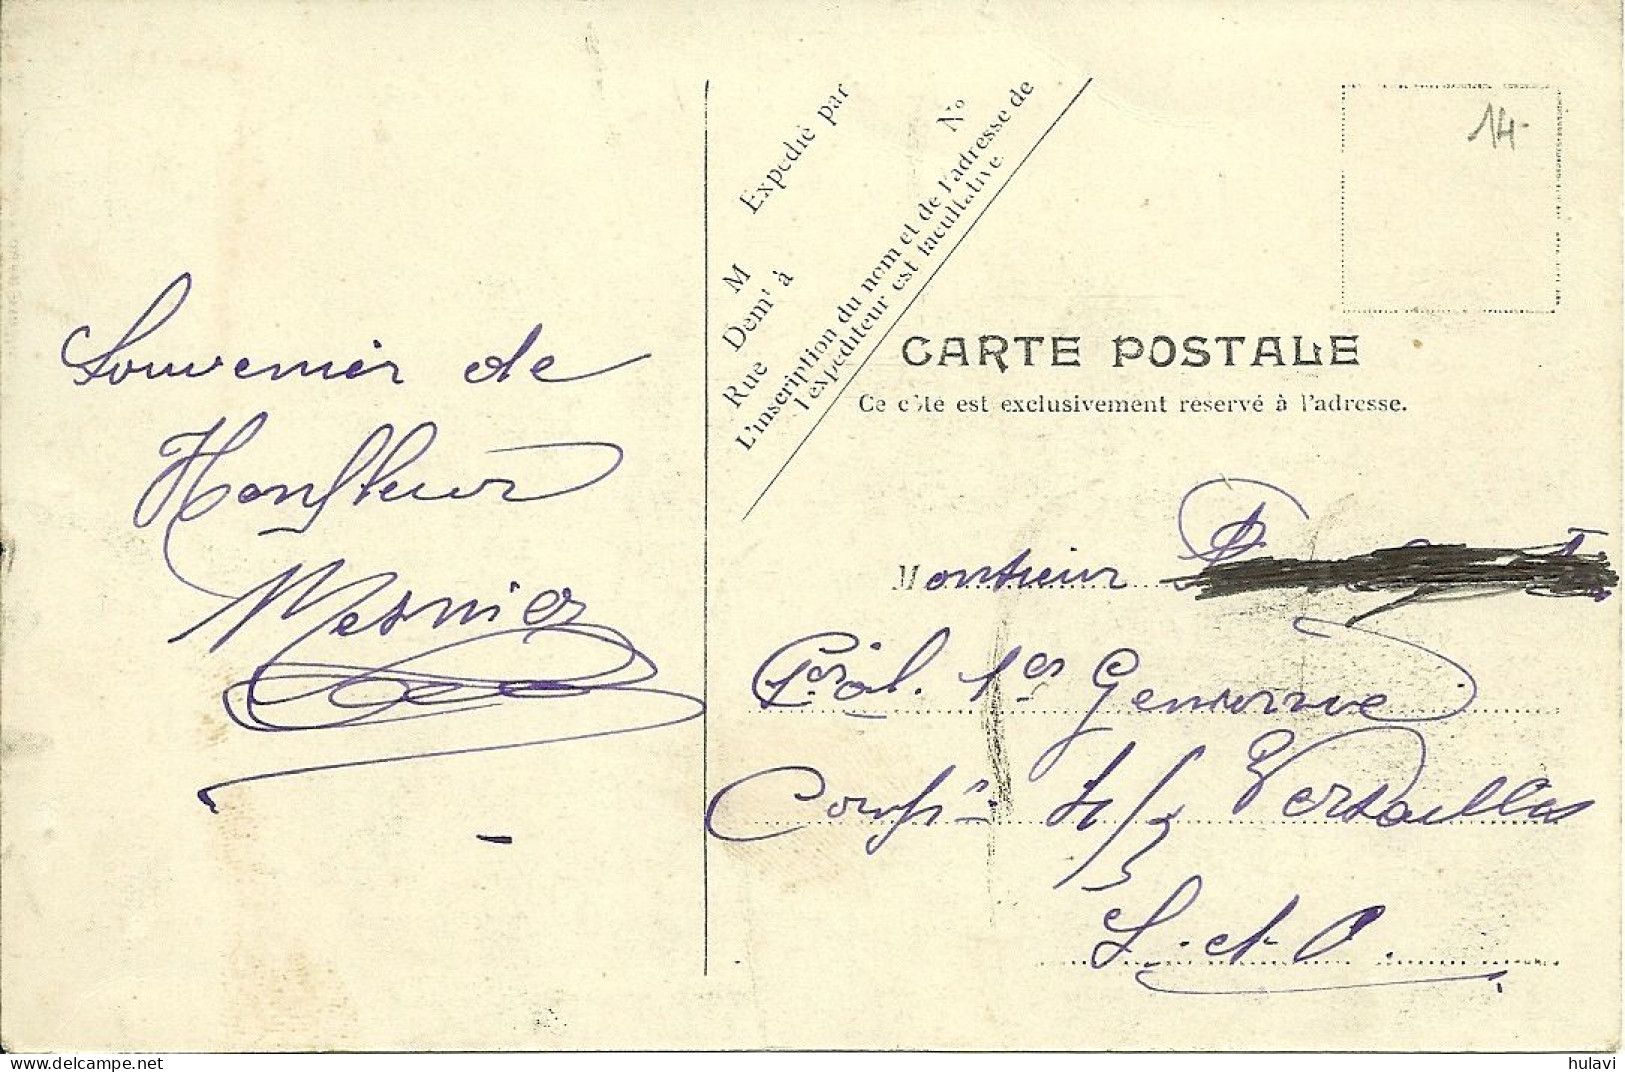 Souvenir de
Honfleur
Mesnier
Expédié par
M
Dem^t à
Rue N°
L'inscription du nom et de l'adresse de
l'expéditeur est facultative
14-
CARTE POSTALE
Ce côté est exclusivement réservé à l'adresse.
Monsieur
1er Génie
Comp^ie 4/5 Versailles
S. et O.
www.delcampe.net
hulavi